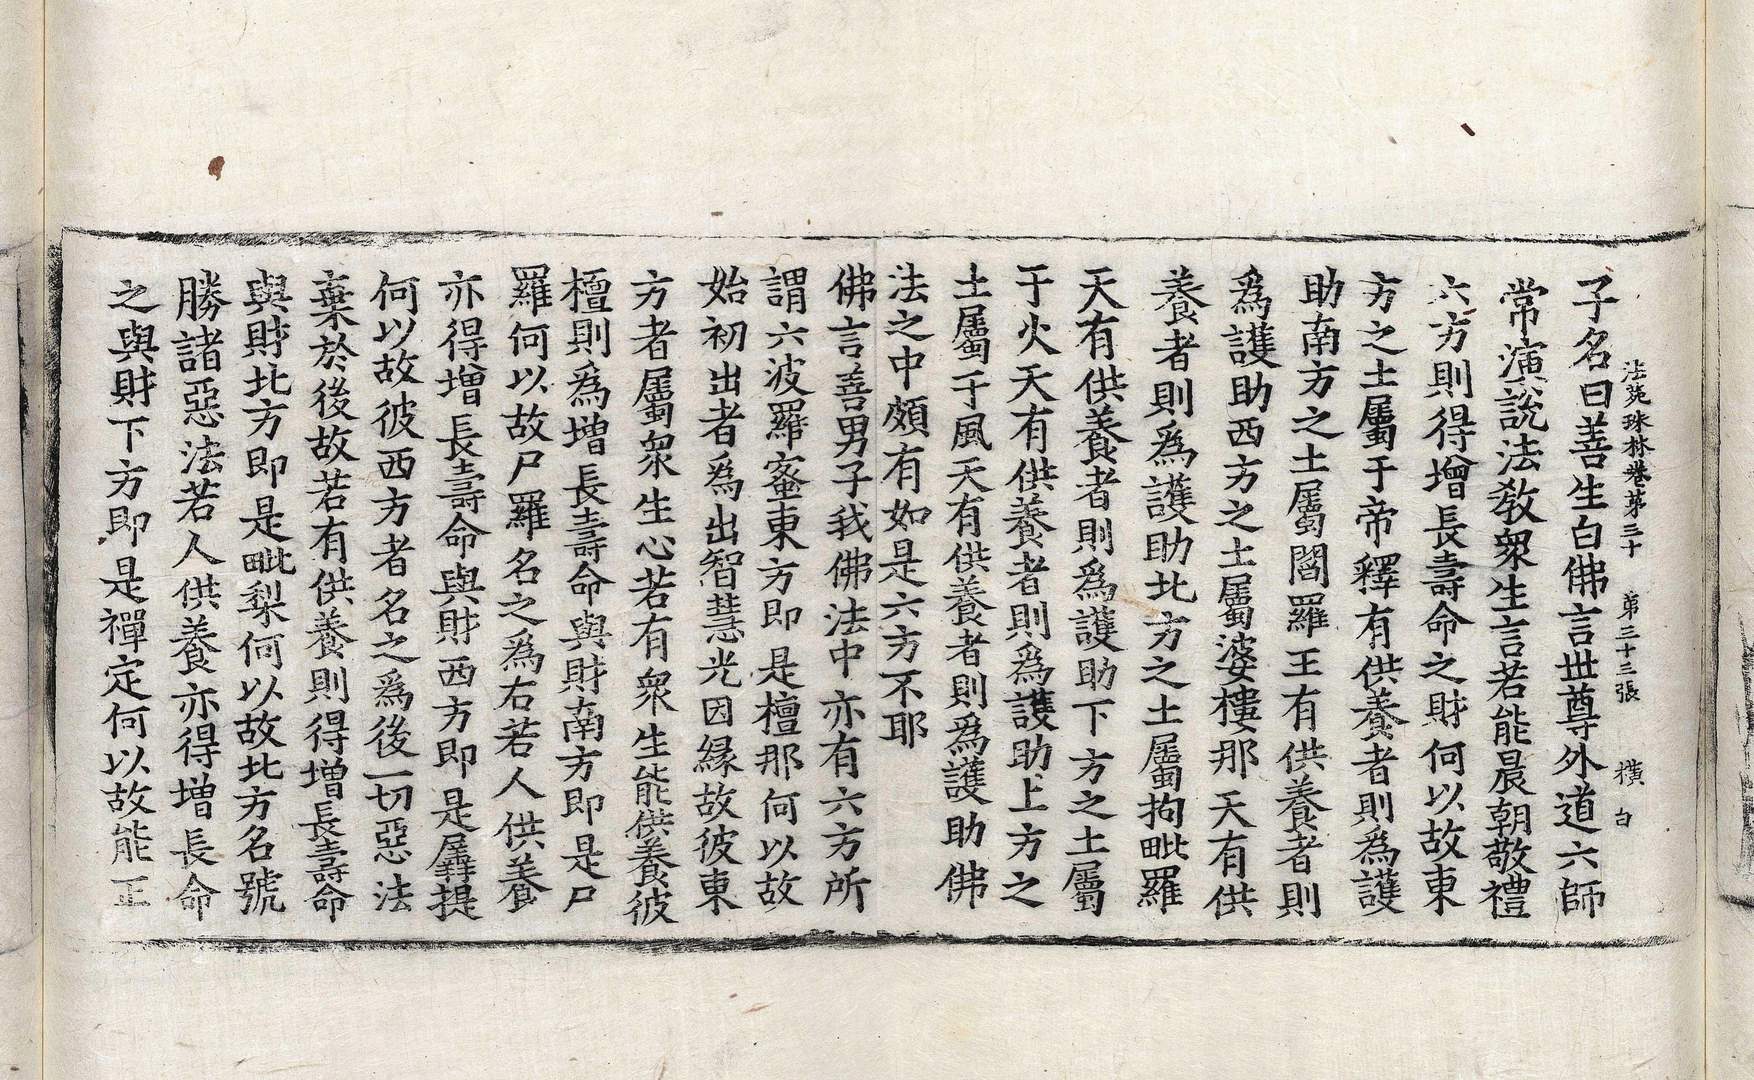 法苑珠林卷第三十　第三十三張　橫　白
子名曰善生白佛言世尊外道六師
常演說法教衆生言若能晨朝敬禮
六方則得增長壽命之財何以故東
方之土屬于帝釋有供養者則爲護
助南方之土屬閻羅王有供養者則
爲護助西方之土屬婆樓那天有供
養者則爲護助北方之土屬拘毗羅
天有供養者則爲護助下方之土屬
于火天有供養者則爲護助上方之
土屬于風天有供養者則爲護助佛
法之中頗有如是六方不耶
佛言善男子我佛法中亦有六方所
謂六波羅蜜東方即是檀那何以故
始初出者爲出智慧光因緣故彼東
方者屬衆生心若有衆生能供養彼
檀則爲增長壽命與財南方即是尸
羅何以故尸羅名之爲右若人供養
亦得增長壽命與財西方即是羼提
何以故彼西方者名之爲後一切惡法
棄於後故若有供養則得增長壽命
與財北方即是毗梨何以故北方名號
勝諸惡法若人供養亦得增長命
之與財下方即是禪定何以故能正